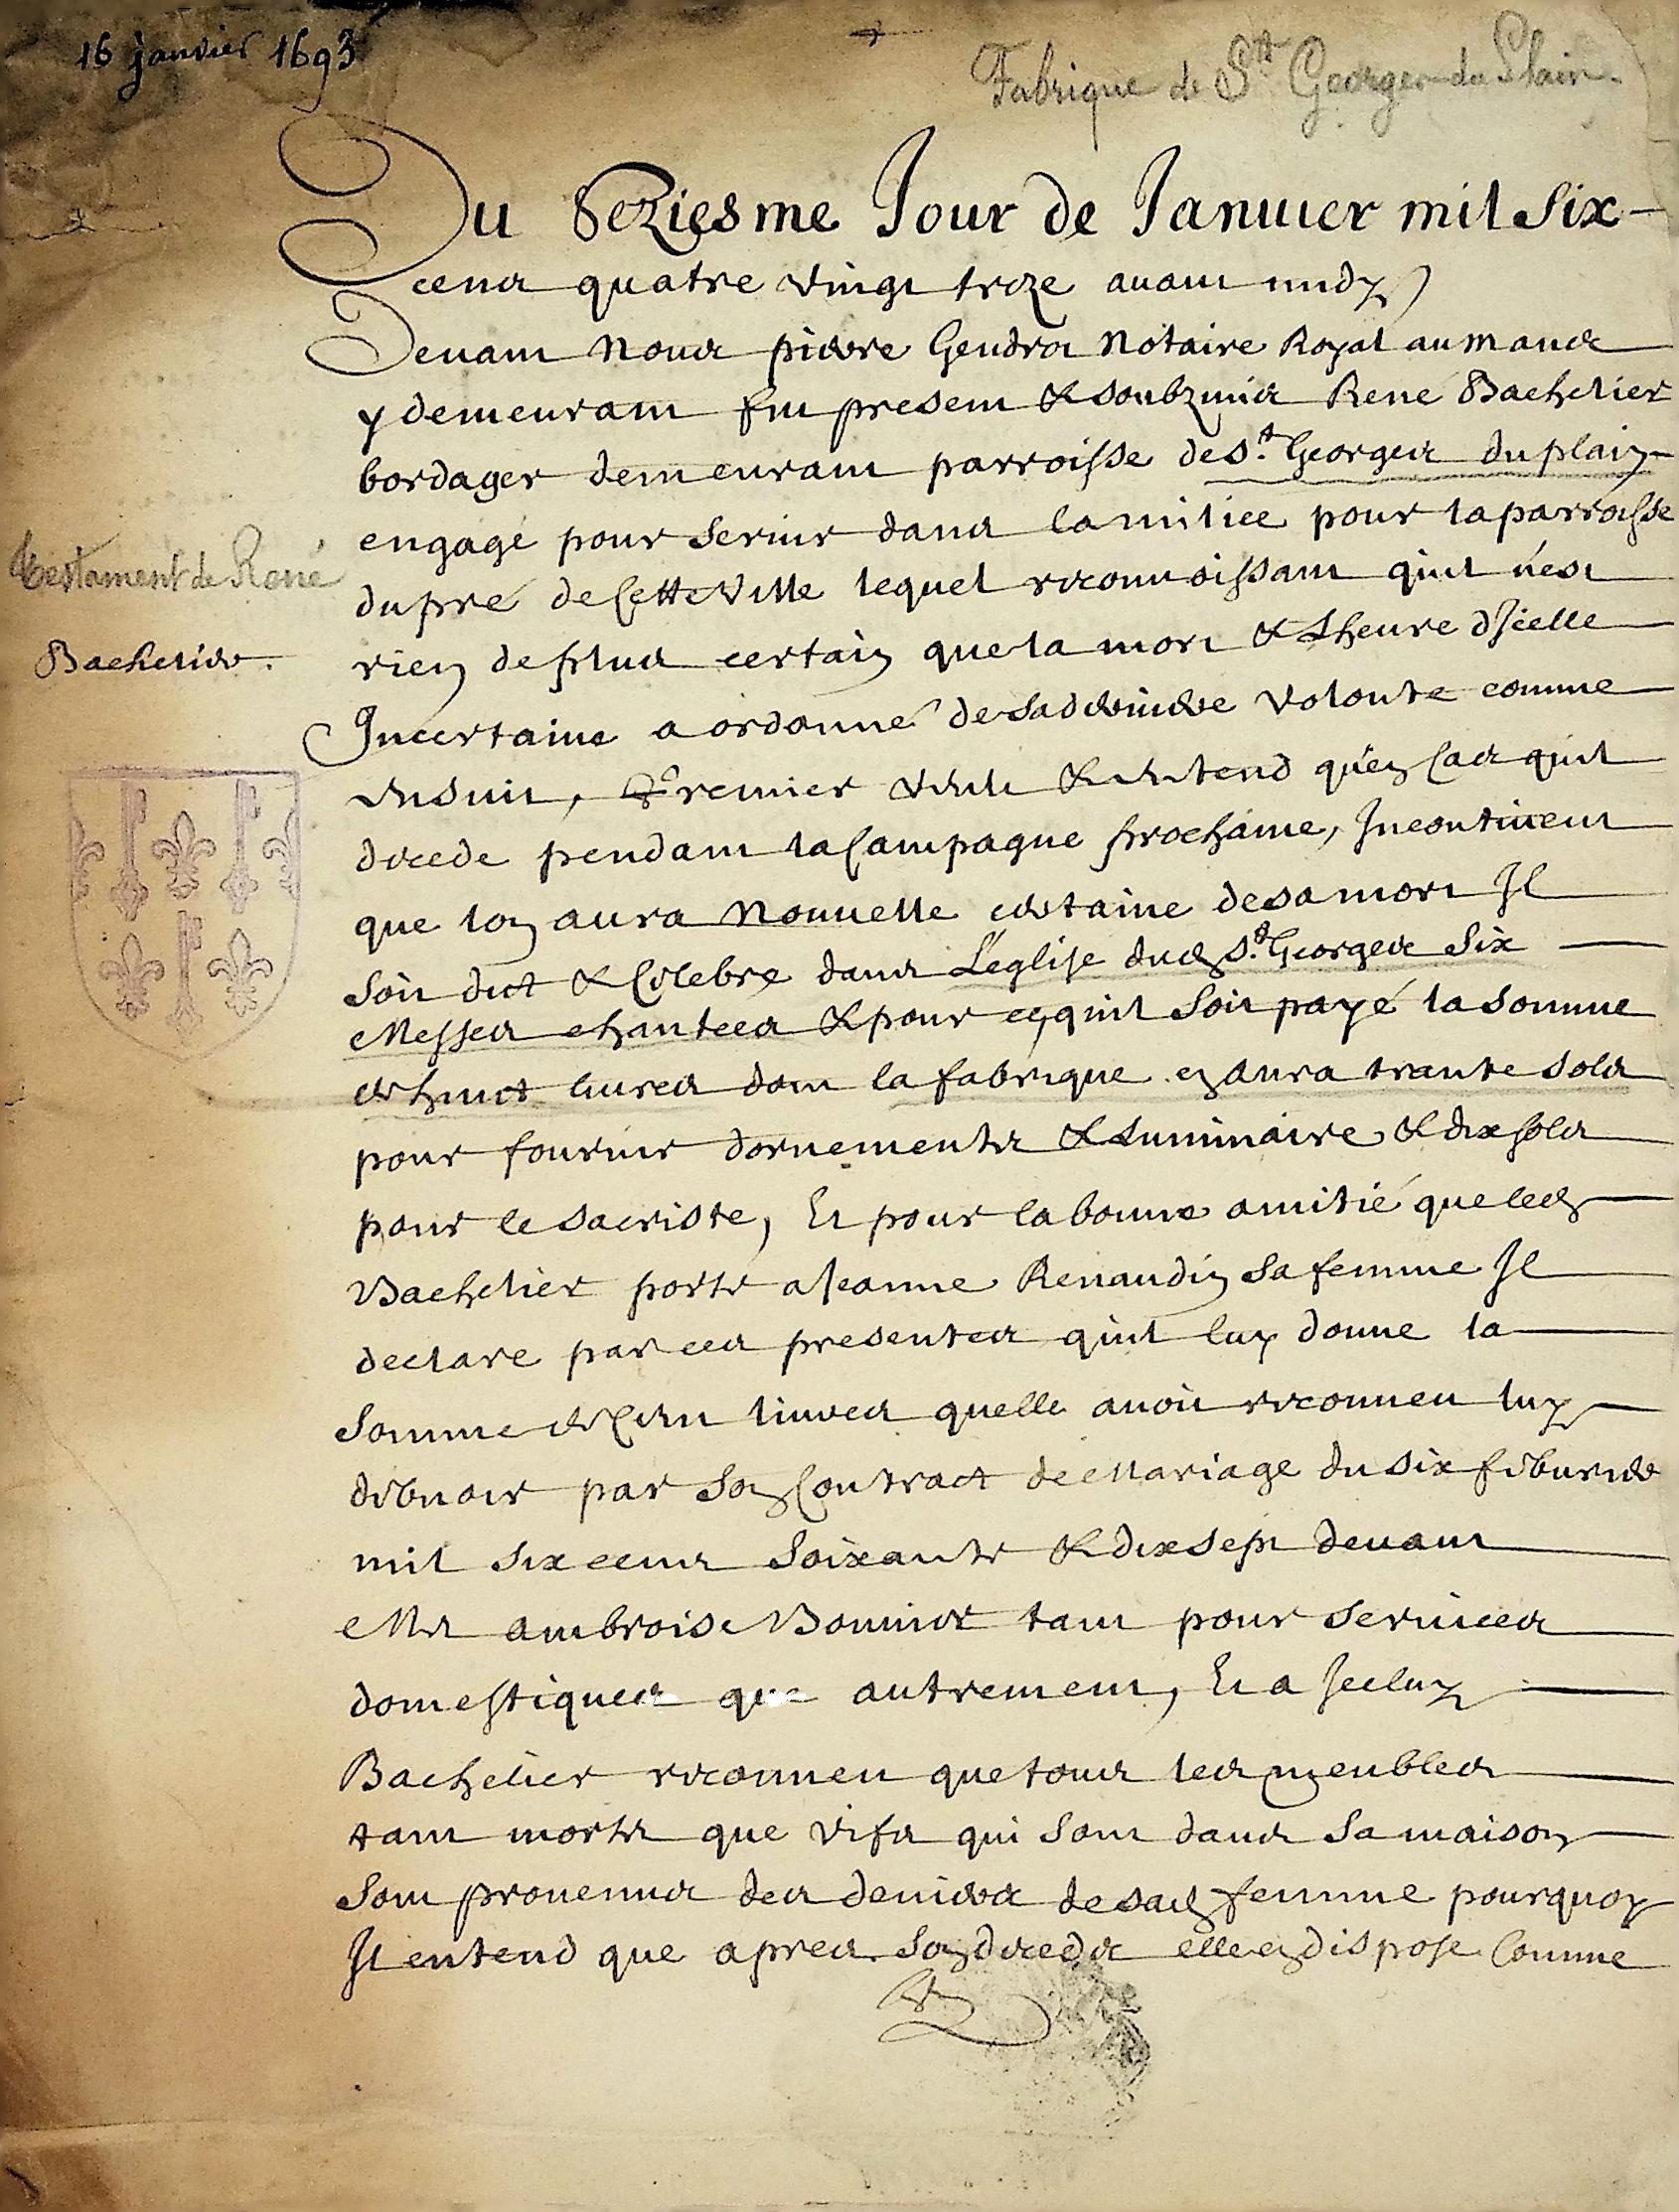 16 janvier 1693
Fabrique de St Georges du Plain.
Du Seziesme Jour de Januier mil Six
cens quatre vingt treze auant midy
Deuant Nous pierre Gendrot Notaire Royal au mans
y demeurant fut present & soubzmis René Bachelier
bordager demeurant parroisse de St. Georges du plain
engagé pour seruir dans la milice pour la parroisse
du pré de Cette Ville lequel reconnoissant quil n'est
rien de plus certain que la mort & Lheure d'Icelle
Testament de René
Bachelier.
Incertaine a ordonné de sa derniere volonte comme
ensuit, Premier veult & entend qu'en Cas quil
decede pendant la Campagne prochaine, Incontinent
que lon aura Nouuelle certaine de sa mort Il
soit dict & Celebre dans L'eglise dud. St. Georges Six
Messes chantees & pour ce quil soit payé la somme
de huict liures dont la fabrique en aura trante sols
pour fournir dornements & Luminaire & dix sols
pour le sacriste, Et pour la bonne amitié que led.
Bachelier porte a Jeanne Renaudin Sa femme Il
declare par ces presentes quil luy donne la
Somme de Cent liures quelle auoit reconneu luy
debuoir par son Contract de Mariage du six feburier
mil six cens soixante & dix sept deuant
Me ambroise Bonnier tant pour seruices
domestiques que autrement, Et a Iceluy
Bachelier reconneu que tous les meubles
tant morts que vifs qui sont dans sa maison
sont prouenus des deniers de sad. femme pourquoy
Il entend que apres son decedz elle en dispose Comme